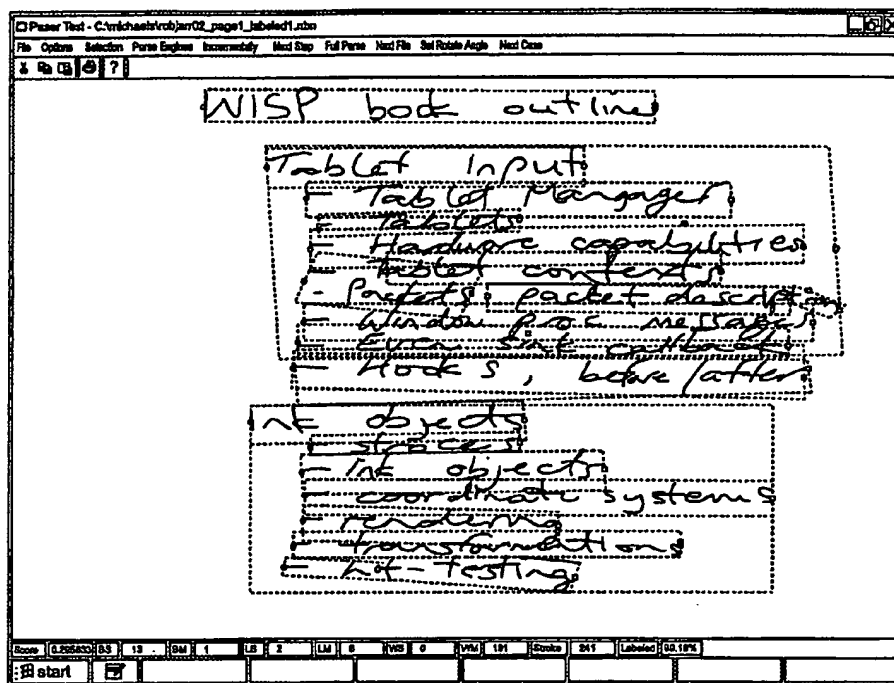 Paser Test - C:\michaels\robjarr02_page1_labeled1.nbn
File Options Selection Parse Engines Incrementally Next Step Full Parse Next File Set Rotate Angle Next Case
?
WISP book outline
Tablet Input
- Tablet Mangager
- Tablets
- Hardware capabilities
- Tablet contexts
- Packets, packet description
- Window proc messages
- Even sink callback
- Hooks, before/after
Ink objects
- strokes
- Ink objects
- coordinate systems
- rendering
- transformations
- hit-testing
Score 0.295833 BS 13 BM 1 LS 2 LM 6 WS 0 WM 191 Stroke 241 Labeled 90.18%
start